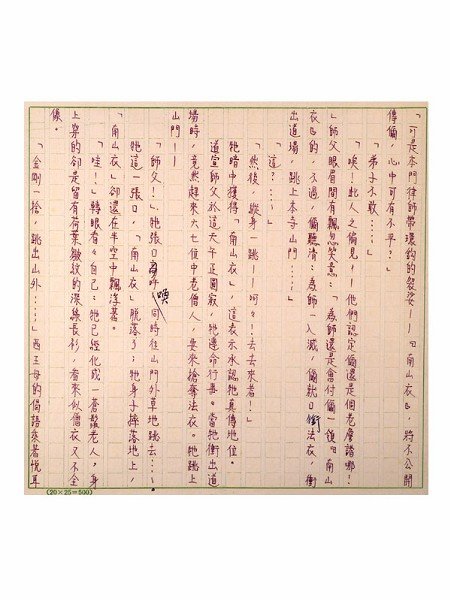 「可是本門律師帶環鈎的袈裟——『南山衣』,將不公開
傳儞,心中可有不平?」
「弟子不敢……」
「唉!此人之偏見!他們認定儞還是個老詹諸哪?
」師父眼眉間有飄忽笑意:「為師還是會付儞一領『南山
衣』的,不過,儞聽清:為師一入滅,儞就口銜法衣,衝
出道場,跳上本寺山門……」
「這?……」
「然後,縱身一跳——呵々!去去來者!」
牠暗中獲得「南山衣」,這表示承認牠真傳地位。
道宣師父於這天午正圓寂,牠遵命行事。當牠衝出道
場時,竟然趕來六七位中老僧人,要來搶奪法衣。牠跳上
山門——
「師父!」牠張口喚,同時往山門外草地跳去……。
牠這一張口,「南山衣」脫落了;牠身子摔落地上,
「南山衣」卻還在半空中飄浮著。
「哇!」轉眼看々自己:牠已經化成一蒼髯老人,身
上穿的卻是留有荷葉皺紋的深綠長衫,看來似僧衣又不全
像。
「金剛一拾,跳出山外……」西王母的偈語乘著悅耳
(20×25=500)